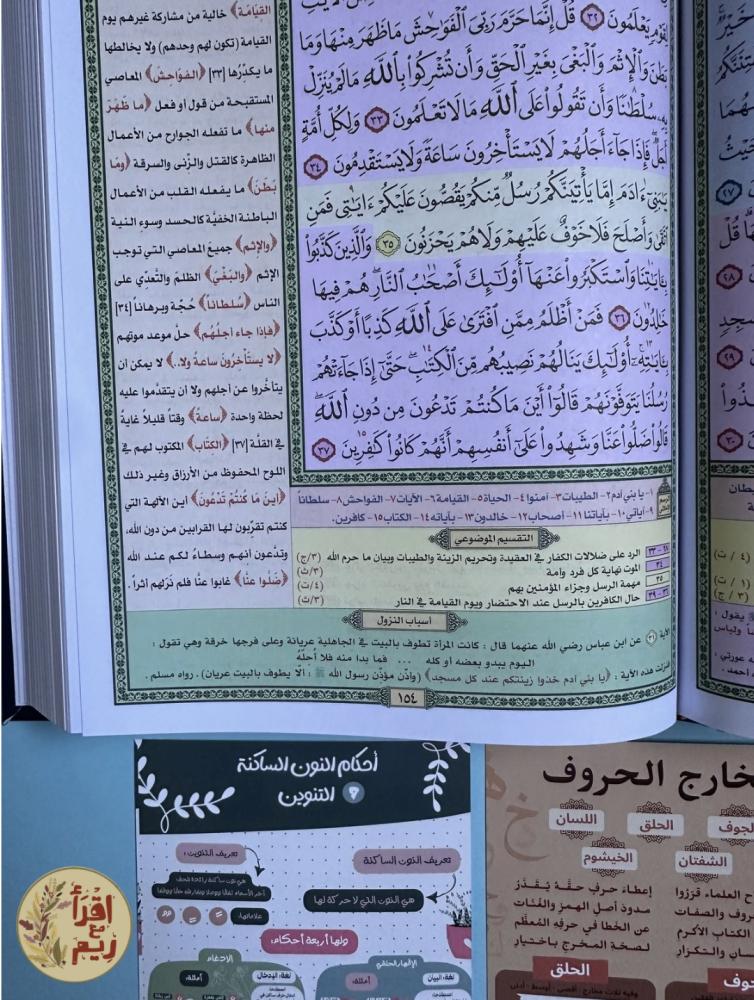 لِقَوْمٍ يَعْلَمُونَ ٣٢ قُلْ إِنَّمَا حَرَّمَ رَبِّيَ ٱلْفَوَٰحِشَ مَا ظَهَرَ مِنْهَا وَمَا
بَطَنَ وَٱلْإِثْمَ وَٱلْبَغْيَ بِغَيْرِ ٱلْحَقِّ وَأَن تُشْرِكُوا۟ بِٱللَّهِ مَا لَمْ يُنَزِّلْ
بِهِۦ سُلْطَٰنًا وَأَن تَقُولُوا۟ عَلَى ٱللَّهِ مَا لَا تَعْلَمُونَ ٣٣ وَلِكُلِّ أُمَّةٍ
أَجَلٌ ۖ فَإِذَا جَآءَ أَجَلُهُمْ لَا يَسْتَأْخِرُونَ سَاعَةً وَلَا يَسْتَقْدِمُونَ ٣٤
يَٰبَنِىٓ ءَادَمَ إِمَّا يَأْتِيَنَّكُمْ رُسُلٌ مِّنكُمْ يَقُصُّونَ عَلَيْكُمْ ءَايَٰتِى فَمَنِ
ٱتَّقَىٰ وَأَصْلَحَ فَلَا خَوْفٌ عَلَيْهِمْ وَلَا هُمْ يَحْزَنُونَ ٣٥ وَٱلَّذِينَ كَذَّبُوا۟
بِـَٔايَٰتِنَا وَٱسْتَكْبَرُوا۟ عَنْهَآ أُو۟لَٰٓئِكَ أَصْحَٰبُ ٱلنَّارِ ۖ هُمْ فِيهَا
خَٰلِدُونَ ٣٦ فَمَنْ أَظْلَمُ مِمَّنِ ٱفْتَرَىٰ عَلَى ٱللَّهِ كَذِبًا أَوْ كَذَّبَ
بِـَٔايَٰتِهِۦٓ ۚ أُو۟لَٰٓئِكَ يَنَالُهُمْ نَصِيبُهُم مِّنَ ٱلْكِتَٰبِ ۖ حَتَّىٰٓ إِذَا جَآءَتْهُمْ
رُسُلُنَا يَتَوَفَّوْنَهُمْ قَالُوٓا۟ أَيْنَ مَا كُنتُمْ تَدْعُونَ مِن دُونِ ٱللَّهِ ۖ
قَالُوا۟ ضَلُّوا۟ عَنَّا وَشَهِدُوا۟ عَلَىٰٓ أَنفُسِهِمْ أَنَّهُمْ كَانُوا۟ كَٰفِرِينَ ٣٧
القيامة﴾ خالية من مشاركة غيرهم يوم
القيامة (تكون لهم وحدهم) ولا يخالطها
ما يكدّرُها [٣٣] ﴿الفَوَاحِشَ﴾ المعاصي
المستقبحة من قول أو فعل ﴿ما ظَهَرَ
منها﴾ ما تفعله الجوارح من الأعمال
الظاهرة كالقتل والزّنى والسرقة ﴿وَما
بَطَنَ﴾ ما يفعله القلب من الأعمال
الباطنة الخفيَّة كالحسد وسوء النية
﴿والإثم﴾ جميع المعاصي التي توجب
الإثم ﴿والبَغْيَ﴾ الظلمَ والتَّعدّي على
الناس ﴿سُلطاناً﴾ حُجّة وبرهاناً [٣٤]
﴿فإذا جاء أجلُهُم﴾ حلَّ موعد موتهم
﴿لا يستأخِرُون ساعةً ولا..﴾ لا يمكن أن
يتأخّروا عن أجلهم ولا أن يتقدّموا عليه
لحظة واحدة ﴿ساعةً﴾ وقتاً قليلاً غايةً
في القلّة [٣٧] ﴿الكتَاب﴾ المكتوب لهم في
اللوح المحفوظ من الأرزاق وغير ذلك
﴿أينَ ما كُنتُمْ تَدْعُونَ﴾ أين الآلهة التي
كنتم تقرِّبون لها القرابين من دون الله،
وتدعون أنهم وسطاءُ لكم عند الله
﴿ضَلُّوا عنّا﴾ غابوا عنّا فلم نَرَ لهم أثراً.
١- يا بني آدم ٢- الطيبات ٣- آمنوا ٤- الحياة ٥- القيامة ٦- الآيات ٧- الفواحش ٨- سلطاناً
٩- آياتي ١٠- بآياتنا ١١- أصحاب ١٢- خالدون ١٣- بآياته ١٤- الكتاب ١٥- كافرين.
التقسيم الموضوعي
٢٨ - ٣٣ الرد على ضلالات الكفار في العقيدة وتحريم الزينة والطيبات وبيان ما حرم الله (٣/ج)
٣٤ الموت نهاية كل فرد وأمة (٣/ث)
٣٥ مهمة الرسل وجزاء المؤمنين بهم (٤/ت)
٣٦ - ٣٩ حال الكافرين بالرسل عند الاحتضار ويوم القيامة في النار (٣/ث)
أسباب النزول
الآية (٣١) عن ابن عباس رضي الله عنهما قال : كانت المرأة تطوف بالبيت في الجاهلية عريانة وعلى فرجها خرقة وهي تقول :
اليوم يبدو بعضه أو كله ... فما بدا منه فلا أحلّهُ
فنزلت هذه الآية : ﴿يا بني آدم خذوا زينتكم عند كل مسجد﴾ (وأذن مؤذن رسول الله ﷺ : ألا يطوف بالبيت عريان) . رواه مسلم .
١٥٤
أحكام النون الساكنة
و التنوين
تعريف التنوين:
تعريف النون الساكنة
هي النون التي لا حركة لها
علاماتها:
ولها أربعة أحكام:
الإدغام
الإظهار الحلقي
أمثلة:
لغة: الإدخال
أمثلة:
لغة: البيان
مخارج الحروف
الجوف
الحلق
اللسان
الشفتان
الخيشوم
العلماء قرّروا إعطاءَ حرفٍ حقَّهُ يُقَدَّرُ
الحروف والصفات مدودَ أصلِ الهمزِ والغُنّات
الكتاب الأكرمِ عن الخطا في حرفِهِ المُعظَّمِ
والتكرارِ لصحةِ المخرجِ باختبارِ
الحلق
اقْرَأْ
مع
ريم